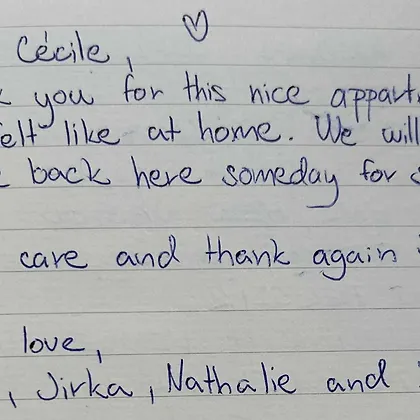 Cécile,
you for this nice appart
felt like at home. We will
back here someday for
care and thank again
love,
, Jirka, Nathalie and